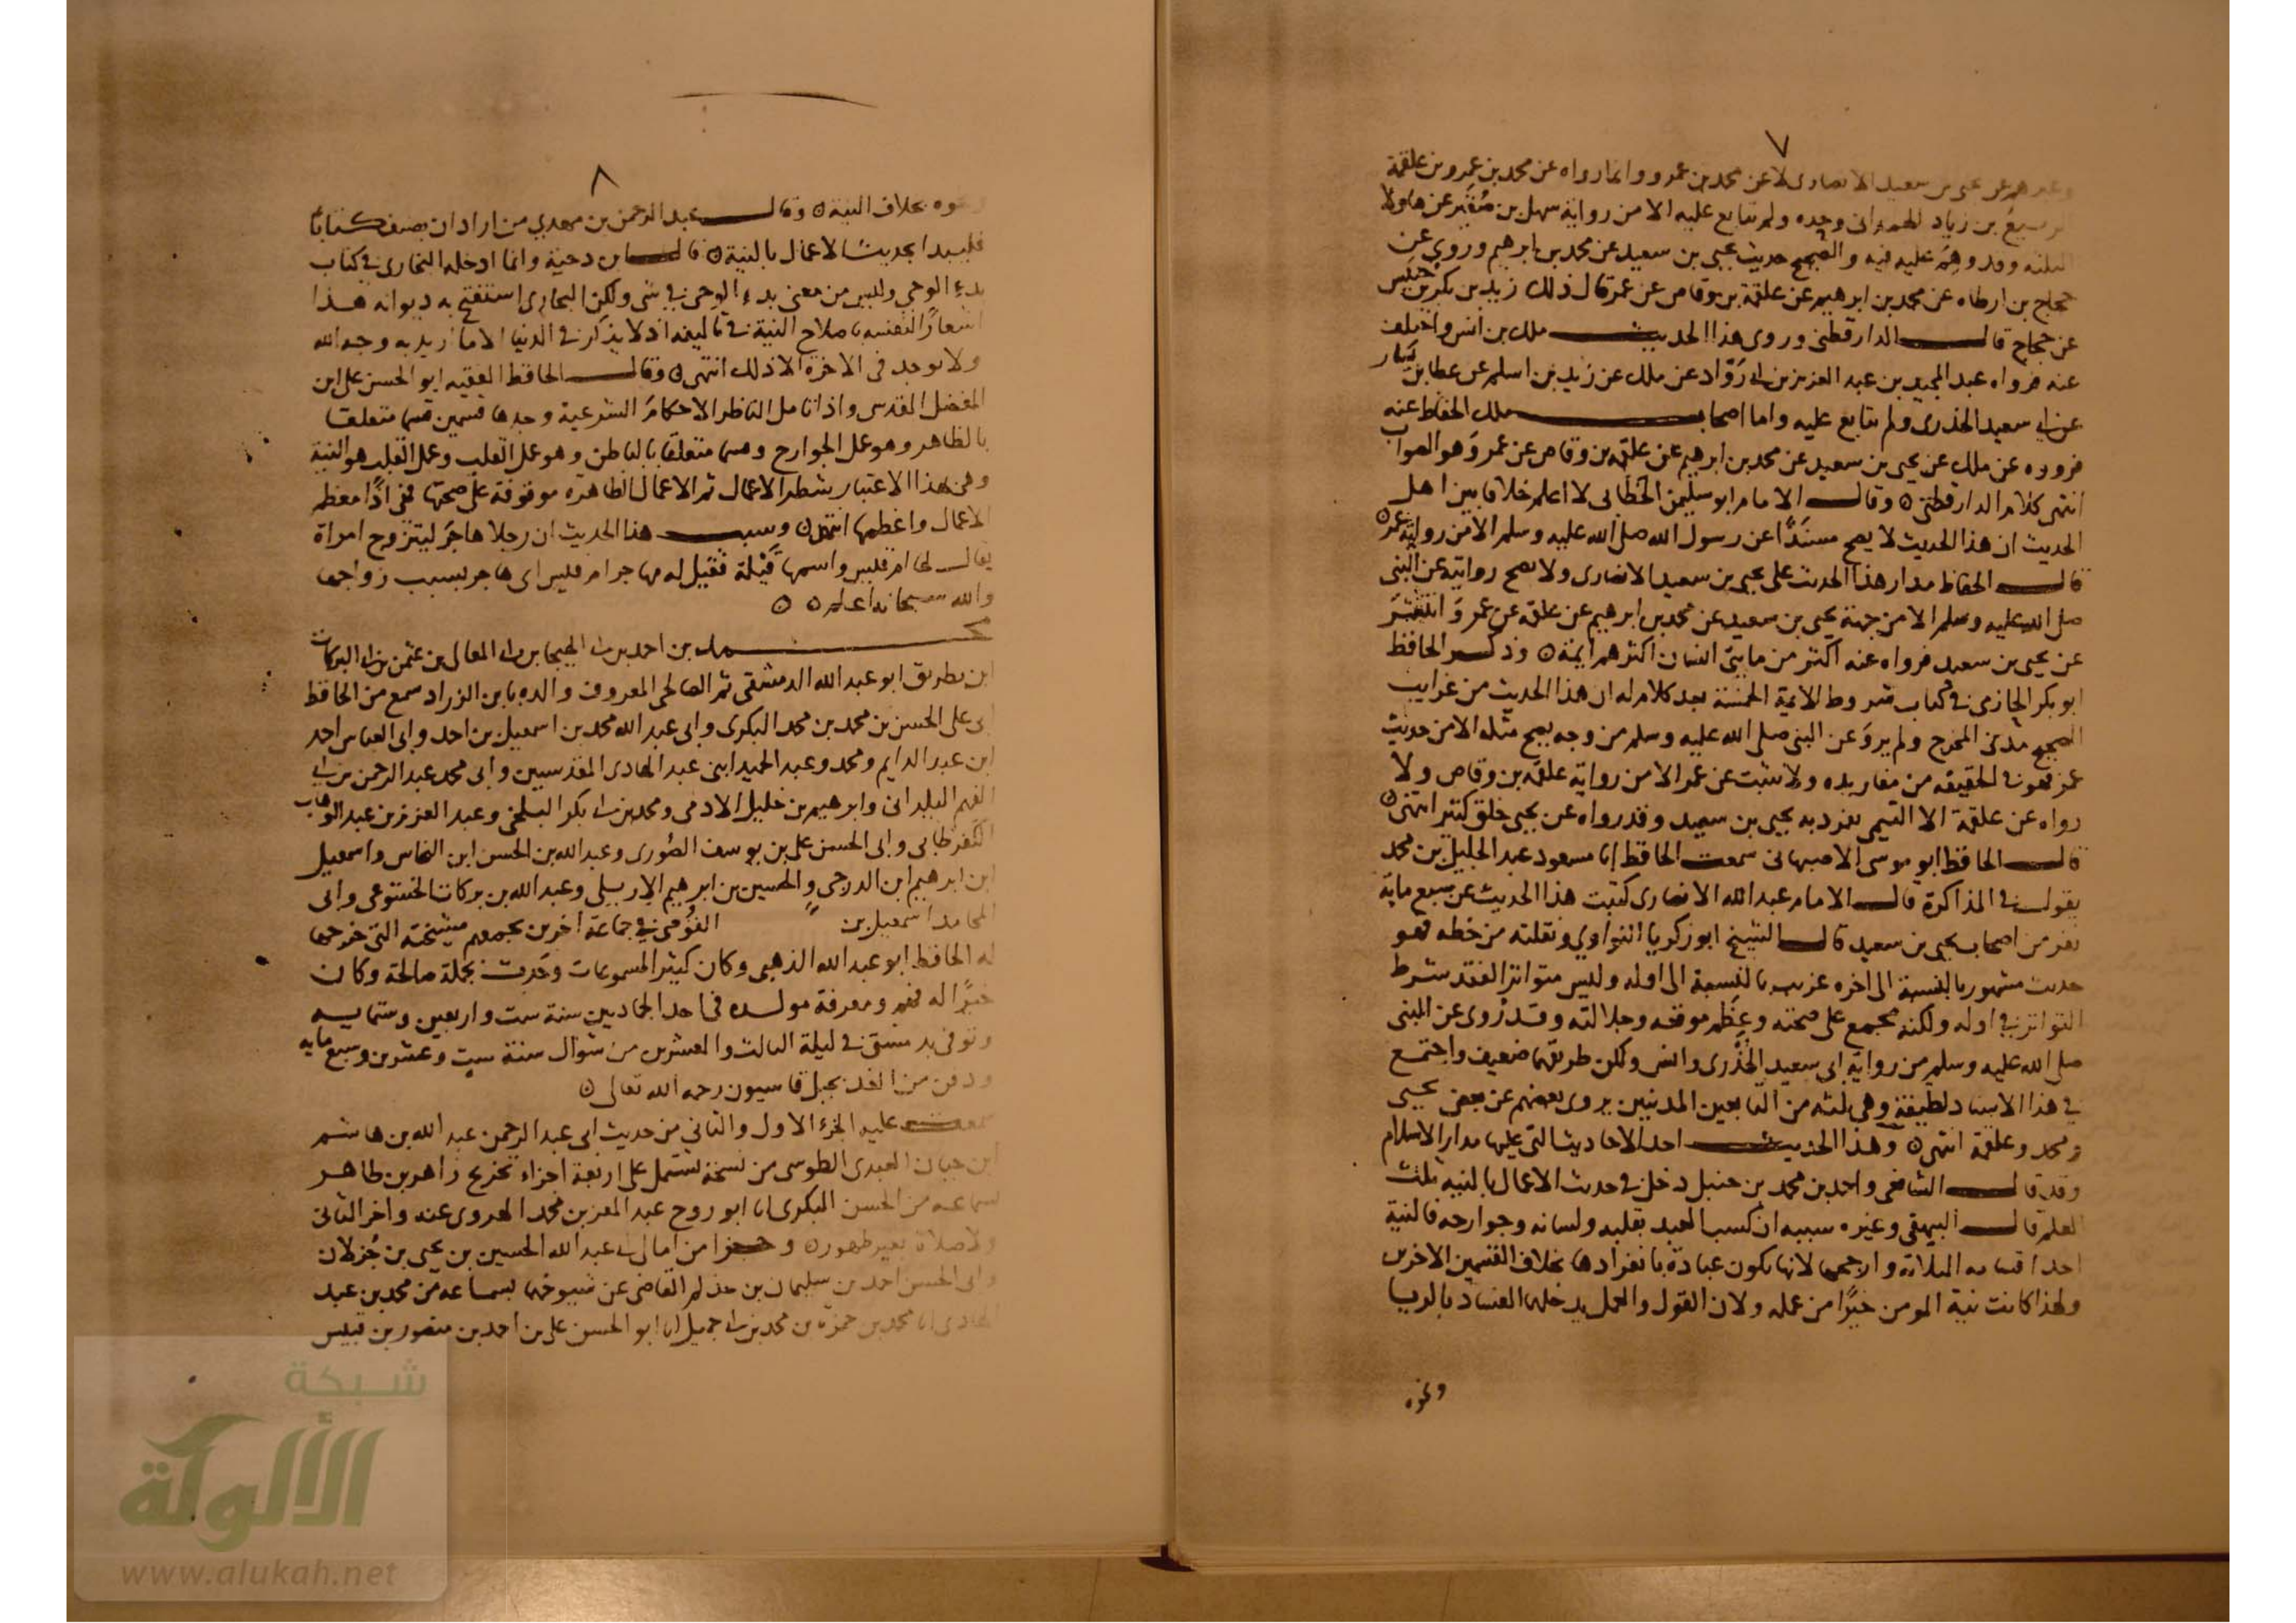 ٧
وغيرهم عن يحيى بن سعيد الانصارى لا عن محمد بن عمرو وانما رواه عن محمد بن عمرو بن علقمة
الربيع بن زياد الهمدانى وحده ولم يتابع عليه الا من رواية سهل بن صُقَير عن هاولا
الثلثه وقد وهِمَ عليه فيه والصحيح حديث يحيى بن سعيد عن محمد بن ابرهيم وروي عن
حجاج بن ارطاه عن محمد بن ابرهيم عن علقمة بن وقاص عن عمر قال ذلك زيد بن بكر بن خنيس
عن حجاج قال الدارقطنى وروى هذا الحديث ملك بن انس واختلف
عنه فرواه عبد المجيد بن عبد العزيز بن ابى رَوّاد عن ملك عن زيد بن اسلم عن عطا بن يَسَار
عن ابى سعيد الخدرى ولم يتابع عليه واما اصحاب ملك الحفاظ عنه
فرووه عن ملك عن يحيى بن سعيد عن محمد بن ابرهيم عن علقمه بن وقاص عن عمر وَهو الصواب
انتهى كلام الدارقطنى ٥ وقال الامام ابو سليمن الخطابى لا اعلم خلافا بين اهل
الحديث ان هذا الحديث لا يصح مسنَدًا عن رسول الله صلى الله عليه وسلم الا من رواية عمر ٥
قال الحفاظ مدار هذا الحديث على يحيى بن سعيد الانصارى ولا يصح روايته عن النبى
صلى الله عليه وسلم الا من جهة يحيى بن سعيد عن محمد بن ابرهيم عن علقمه عن عمر وَ انتشَرَ
عن يحيى بن سعيد فرواه عنه اكثر من مايتى انسان اكثرهم ايمة ٥ وذكر الحافظ
ابو بكر الحازمى فى كتاب شروط الايمة الخمسة بعد كلام له ان هذا الحديث من غرايب
الصحيح مدنى المخرج ولم يروَ عن النبى صلى الله عليه وسلم من وجه يصح مثله الا من حديث
عمر فهو فى الحقيقه من مفاريده ولا يثبت عن عمر الا من رواية علقمه بن وقاص ولا
رواه عن علقمة الا التيمى تفرد به يحيى بن سعيد وقد رواه عن يحيى خلق كثير انتهى ٥
قال الحافظ ابو موسى الاصبهانى سمعت الحافظ ابا مسعود عبد الجليل بن محمد
يقول فى المذاكرة قال الامام عبد الله الانصارى كتبت هذا الحديث عن سبع مايه
نفر من اصحاب يحيى بن سعيد قال الشيخ ابو زكريا النواوي ونقلته من خطه هو
حديث مشهور بالنسبة الى اخره غريب بالنسبة الى اوله وليس متواترا لفقد شرط
التواتر فى اوله ولكنه مجمع على صحته وعِظَم موقعه وجلالته وقد رُوى عن النبى
صلى الله عليه وسلم من رواية ابى سعيد الخُدْرى وانس ولكن طريقهما ضعيف واجتمع
فى هذا الاسناد لطيفة وهى ثلثه من التابعين المدنيين يروى بعضهم عن بعض يحيى
ومحمد وعلقمة انتهى ٥ وهذا الحديث احد الاحاديث التى عليها مدار الاسلام
وقد قال الشافعى واحمد بن محمد بن حنبل دخل فى حديث الاعمال بالنيه ثلث
العلم قال البيهقى وغيره سببه ان كسب العبد بقلبه ولسانه وجوارحه فالنية
احد اقسامه الثلاثة وارجحها لانها تكون عبادة بانفرادها بخلاف القسمين الاخرين
ولهذا كانت نية المومن خيرًا من عمله ولان القول والعمل يدخلهما الفساد بالريا
ونحوه
٨
ونحوه بخلاف النية ٥ وقال عبد الرحمن بن مهدي من اراد ان يصنف كتابًا
فليبدا بحديث الاعمال بالنية ٥ قال ابن دحية وانما ادخله البخارى فى كتاب
بدءِ الوحي وليس من معنى بدءِ الوحى فى شى ولكن البخارى استفتح به ديوانه هذا
اشعارًا لنفسه باصلاح النية فى تاليفه اذ لا يذكر فى الدنيا الا ما اريد به وجه الله
ولا يوجد فى الاخرة الا ذلك انتهى ٥ وقال الحافظ الفقيه ابو الحسن على ابن
المفضل المقدسى واذا تامل الناظر الاحكامَ الشرعية وجدها قسمين قسما متعلقا
بالظاهر وهو عمل الجوارح وقسما متعلقا بالباطن وهو عمل القلب وعمل القلب هو النية
وهى بهذا الاعتبار شطر الاعمال ثم الاعمال الظاهرة موقوفة على صحتها فهى اذًا معظم
الاعمال واعظمها انتهى ٥ وسبب هذا الحديث ان رجلا هاجَر ليتزوج امراة
يقال لها ام قيس واسمها قَيْلة فقيل له مهاجر ام قيس اى هاجر بسبب زواجها
والله سبحانه اعلم ٥ ٥
محمد بن احمد بن ابى الهيجا بن ابى المعالى بن عثمن بن ابى البركات
ابن بطريق ابو عبد الله الدمشقى ثم الصالحى المعروف والده بابن الزراد سمع من الحافظ
ابى على الحسن بن محمد بن محمد البكرى وابى عبد الله محمد بن اسمعيل بن احمد وابى العباس احمد
ابن عبد الدايم ومحمد وعبد الحميد ابنى عبد الهادى المقدسيين وابى محمد عبد الرحمن بن ابى
الفهم اليلدانى وابرهيم بن خليل الادمى ومحمد بن ابى بكر البلخى وعبد العزيز بن عبد الوهاب
الكفرطابى وابى الحسن على بن يوسف الصُورى وعبد الله بن الحسن ابن النحاس واسمعيل
ابن ابرهيم ابن الدرجى والحسين بن ابرهيم الاربلى وعبد الله بن بركات الخشوعى وابى
المحامد اسمعيل بن القُوصى فى جماعة اخرين يجمعهم مشيخته التى خرجها
له الحافظ ابو عبد الله الذهبى وكان كثير المسموعات وحَدث بجملة صالحة وكان
خيرًا له فهم ومعرفة مولده فى احد الجمادين سنة ست واربعين وستمايه
وتوفى بدمشق فى ليلة الثالث والعشرين من شوال سنة ست وعشرين وسبع مايه
ودفن من الغد بجبل قاسيون رحمه الله تعالى ٥
سمعت عليه الجزء الاول والثانى من حديث ابى عبد الرحمن عبد الله بن هاشم
ابن حيان العبدى الطوسى من نسخة تشتمل على اربعة اجزاء تخريج زاهر بن طاهر
بسماعه من الحسن البكرى انا ابو روح عبد المعز بن محمد الهروى عنه واخر الثانى
ولا صلاة بغير طهور ٥ وجزا من امالى ابى عبد الله الحسين بن يحيى بن جُزلان
وابى الحسن احمد بن سليمان بن حذلم القاضى عن شيوخهما بسماعه من محمد بن عبد
الهادى انا محمد بن حمزة بن محمد بن ابى جميل انا ابو الحسن على بن احمد بن منصور بن قبيس
شبكة
الألوكة
www.alukah.net